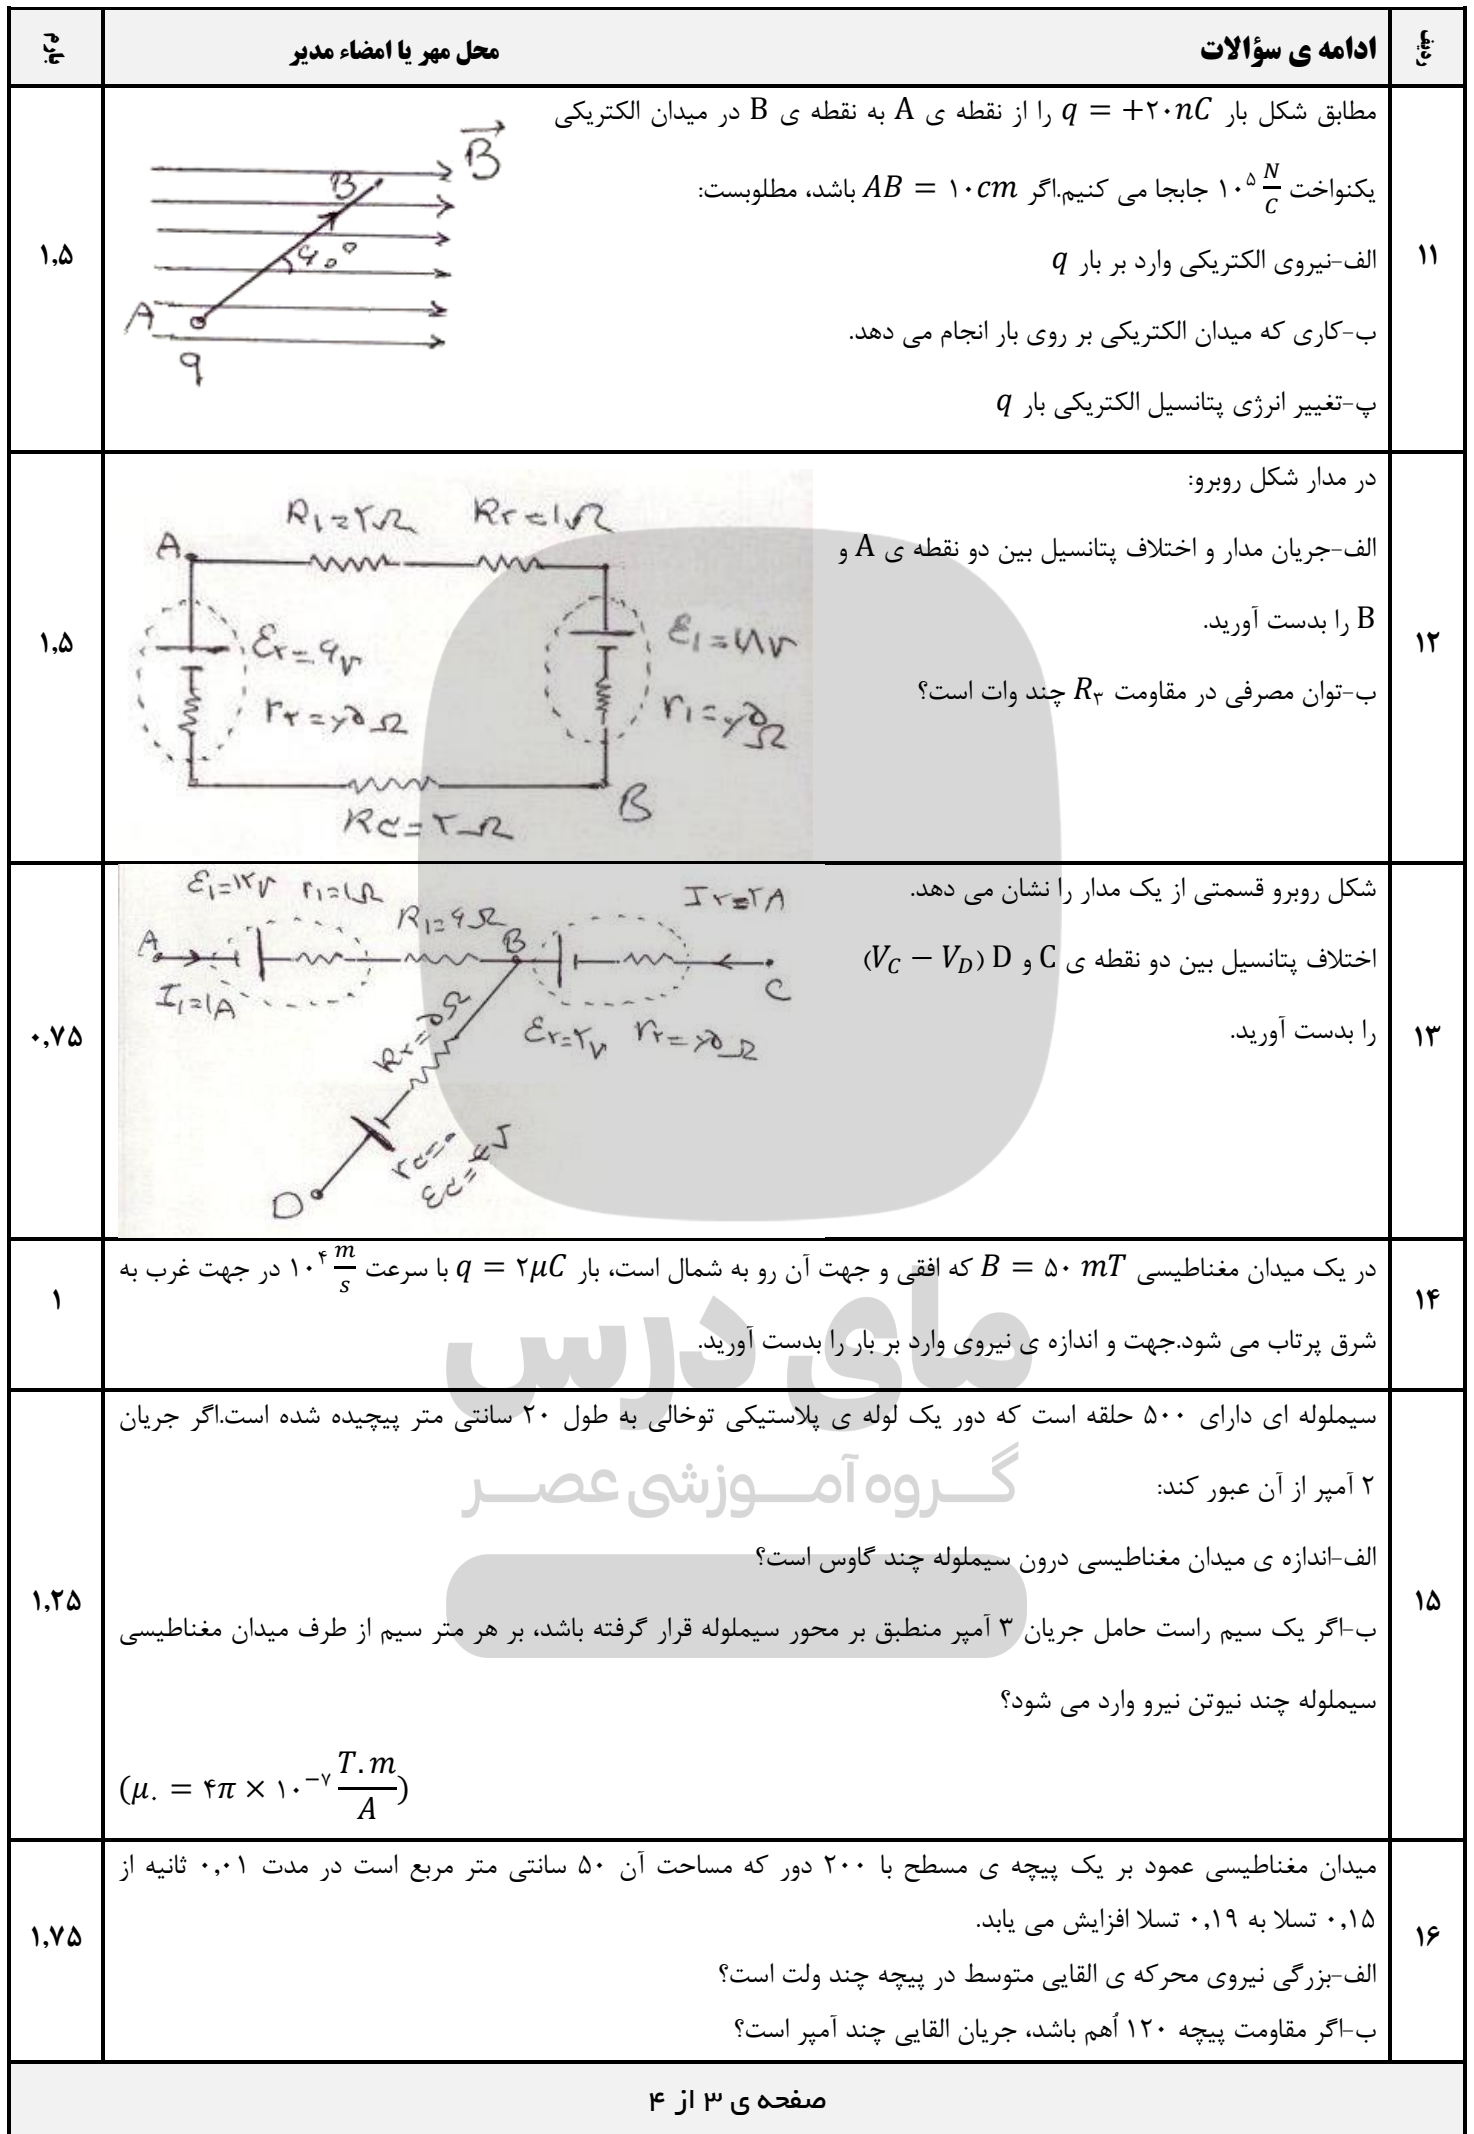 ردیف
ادامه ی سؤالات
محل مهر یا امضاء مدیر
بارم
۱۱
مطابق شکل بار q = +۲۰nC را از نقطه ی A به نقطه ی B در میدان الکتریکی
یکنواخت ۱۰^۵ N/C جابجا می کنیم.اگر AB = ۱۰cm باشد، مطلوبست:
الف-نیروی الکتریکی وارد بر بار q
ب-کاری که میدان الکتریکی بر روی بار انجام می دهد.
پ-تغییر انرژی پتانسیل الکتریکی بار q
B
B
۶۰°
A
q
۱,۵
۱۲
در مدار شکل روبرو:
الف-جریان مدار و اختلاف پتانسیل بین دو نقطه ی A و
B را بدست آورید.
ب-توان مصرفی در مقاومت R۳ چند وات است؟
R۱=۲Ω R۲=۱Ω
A
ε۲=۶v
r۲=۰٫۵Ω
ε۱=۱۸v
r۱=۰٫۵Ω
R۳=۲Ω
B
۱,۵
۱۳
شکل روبرو قسمتی از یک مدار را نشان می دهد.
اختلاف پتانسیل بین دو نقطه ی C و D (V_C − V_D)
را بدست آورید.
ε۱=۱۲v r۱=۱Ω
R۱=۶Ω
I۲=۲A
A
B
C
I۱=۱A
R۲=۵Ω
ε۲=۲v r۲=۰٫۵Ω
r۳=۰
ε۳=۴v
D
۰,۷۵
۱۴
در یک میدان مغناطیسی B = ۵۰ mT که افقی و جهت آن رو به شمال است، بار q = ۲μC با سرعت ۱۰^۴ m/s در جهت غرب به
شرق پرتاب می شود.جهت و اندازه ی نیروی وارد بر بار را بدست آورید.
۱
مای درس
گروه آموزشی عصر
۱۵
سیملوله ای دارای ۵۰۰ حلقه است که دور یک لوله ی پلاستیکی توخالی به طول ۲۰ سانتی متر پیچیده شده است.اگر جریان
۲ آمپر از آن عبور کند:
الف-اندازه ی میدان مغناطیسی درون سیملوله چند گاوس است؟
ب-اگر یک سیم راست حامل جریان ۳ آمپر منطبق بر محور سیملوله قرار گرفته باشد، بر هر متر سیم از طرف میدان مغناطیسی
سیملوله چند نیوتن نیرو وارد می شود؟
(μ۰ = ۴π × ۱۰^−۷ T.m/A)
۱,۲۵
۱۶
میدان مغناطیسی عمود بر یک پیچه ی مسطح با ۲۰۰ دور که مساحت آن ۵۰ سانتی متر مربع است در مدت ۰,۰۱ ثانیه از
۰,۱۵ تسلا به ۰,۱۹ تسلا افزایش می یابد.
الف-بزرگی نیروی محرکه ی القایی متوسط در پیچه چند ولت است؟
ب-اگر مقاومت پیچه ۱۲۰ اُهم باشد، جریان القایی چند آمپر است؟
۱,۷۵
صفحه ی ۳ از ۴